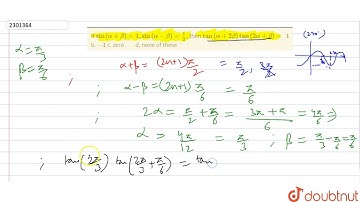 2301364
If sin (α + β) = 1, sin (α − β) = 1/2, then tan (α + 2β) tan (2α + β) = 1
b. −1 c. zero d. none of these
(270°)
α = π/3
β = π/6
α+β = (2n+1) π/2 = π/2, 3π/2
; α−β = (2n+1) π/6 = π/6
; 2α = π/2 + π/6 = 3π + π / 6 = 4π/6 ⇒
α = 4π/12 = π/3 ; β = π/3 − π/6 = π/6
; tan(2π/3) tan(2π/3 + π/6) = tan
doubtnut